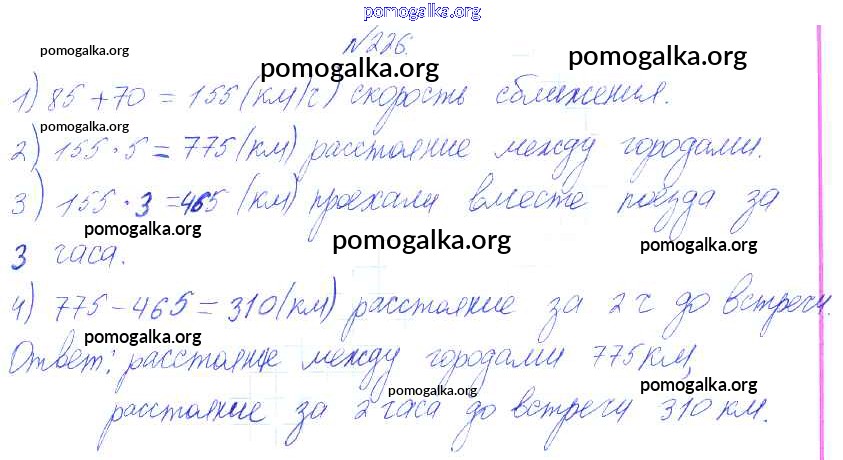 pomogalka.org
№226.
pomogalka.org pomogalka.org pomogalka.org pomogalka.org
1) 85+70 = 155 (км/ч) скорость сближения.
pomogalka.org pomogalka.org
2) 155·5 = 775 (км) расстояние между городами.
3) 155·3 = 465 (км) проехали вместе поезда за
3 часа.
pomogalka.org pomogalka.org
4) 775-465 = 310 (км) расстояние за 2 ч до встречи.
pomogalka.org
Ответ: расстояние между городами 775 км,
pomogalka.org pomogalka.org
расстояние за 2 часа до встречи 310 км.